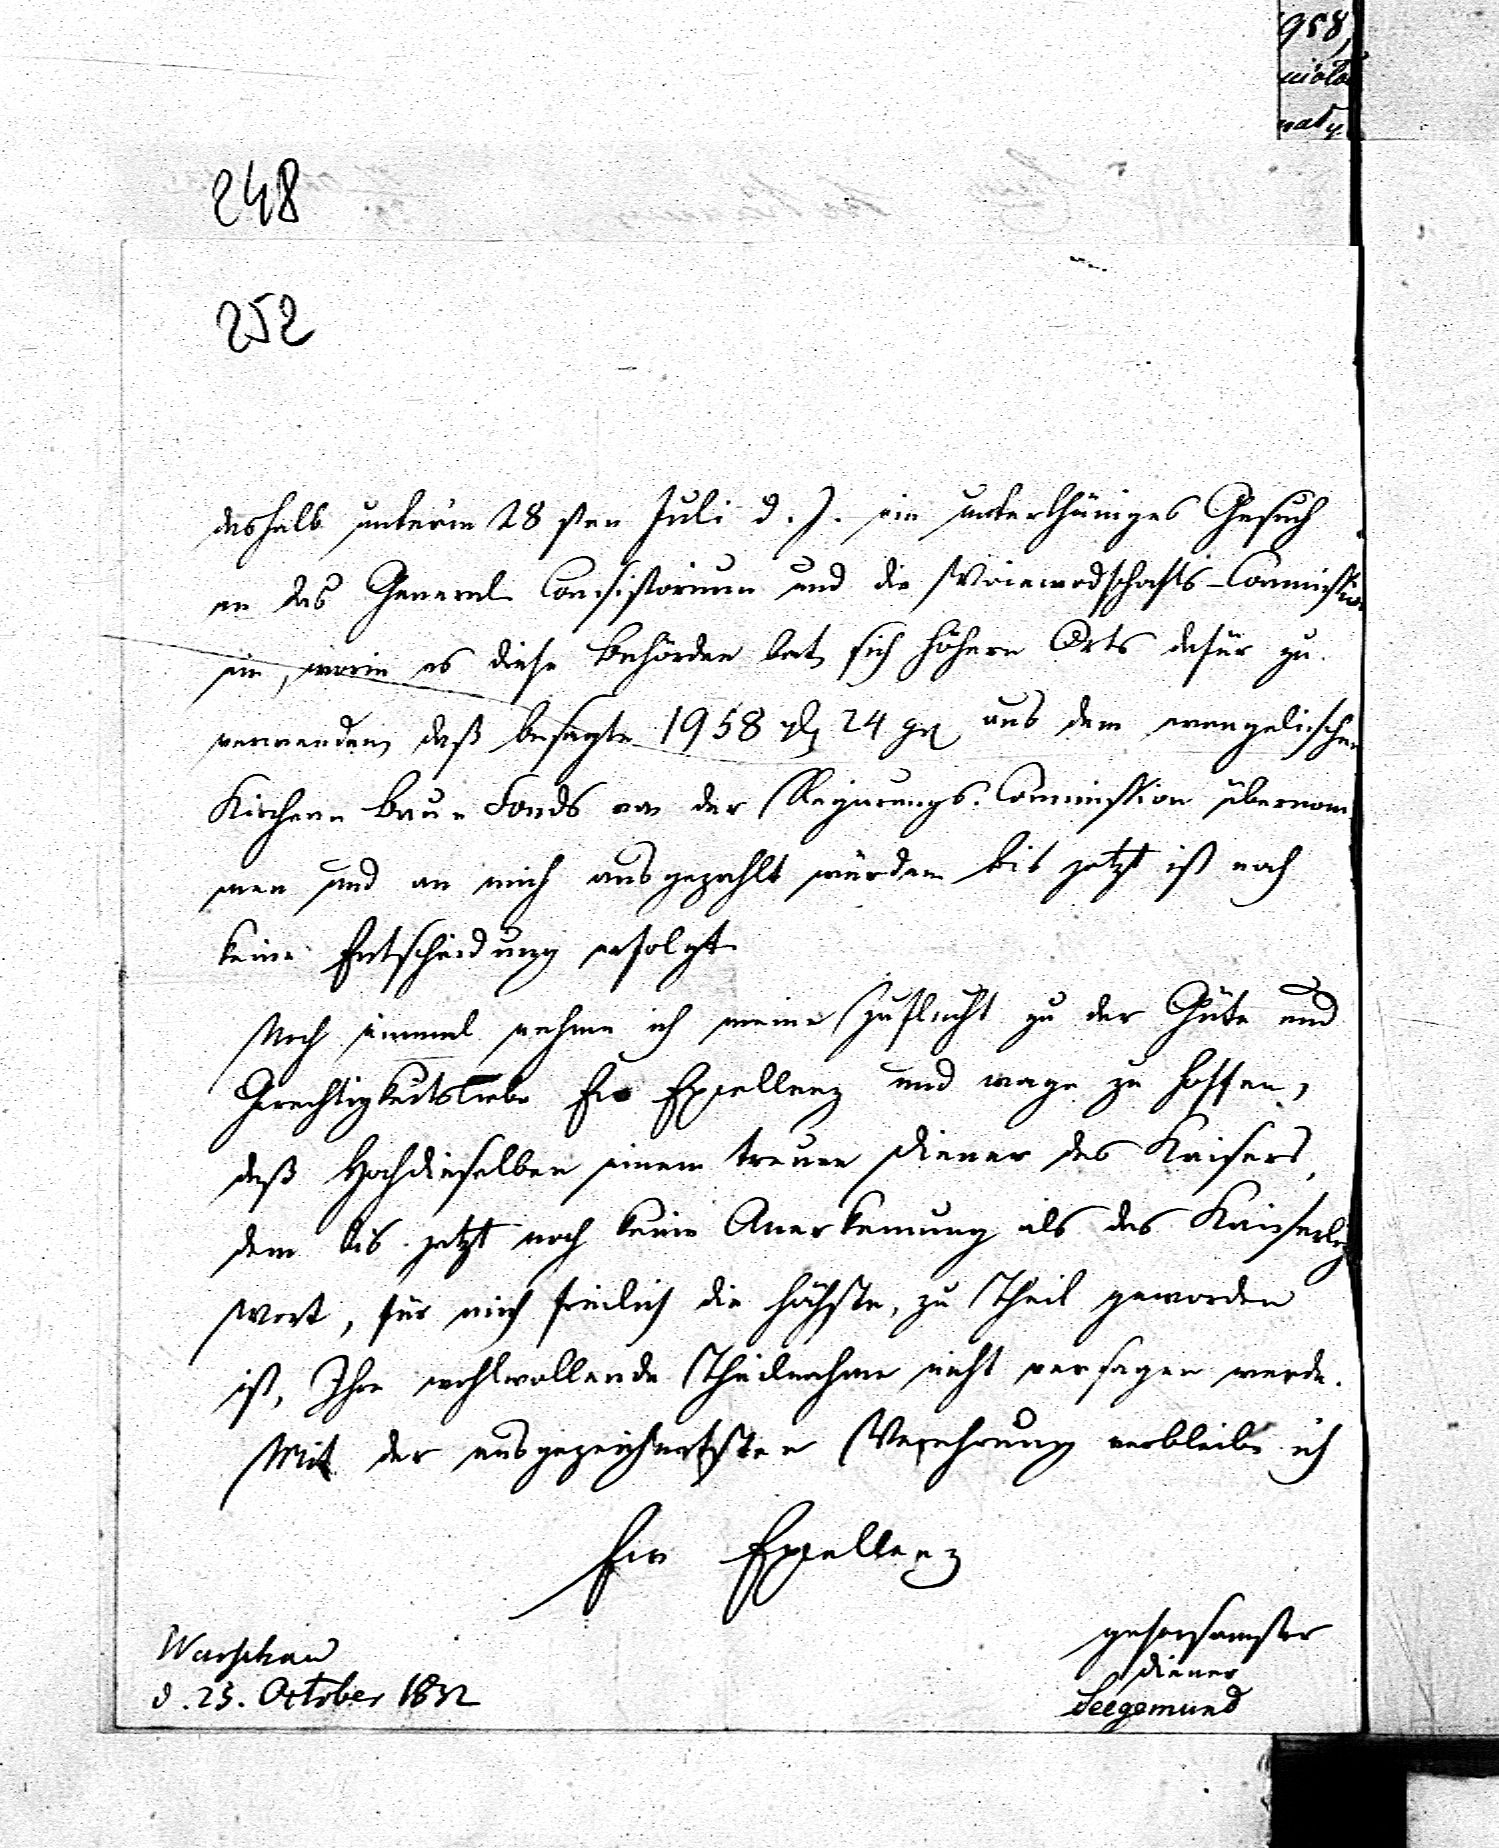 958,
248
252
deshalb unterm 28 sten Juli d. J. ein unterthäniges Gesuch
an das General Consistorium und die Woiewodschafts-Commission
ein, worin es diese Behörden bat, sich höhern Orts dafür zu
verwenden, daß besagte 1958 fl 24 gr aus dem evangelischen
Kirchen Bau Fonds von der Regierungs-Commission übernom
men und an mich ausgezahlt würden bis jetzt ist noch
keine Entscheidung erfolgt
Noch einmal nehme ich meine Zuflucht zu der Güte und
Gerechtigkeitsliebe Ew Excellenz und wage zu hoffen,
daß Hochdieselben einem treuen Diener des Kaisers,
dem bis jetzt noch keine Anerkennung als das
Wort, für mich freilich die höchste, zu Theil geworden
ist, Ihre wohlwollende Theilnahme nicht versagen werde.
Mit der ausgezeichnetsten Verehrung verbleibe ich
Ew Excellenz
gehorsamster
Diener
Seegemund
Warschau
d. 23. October 1832